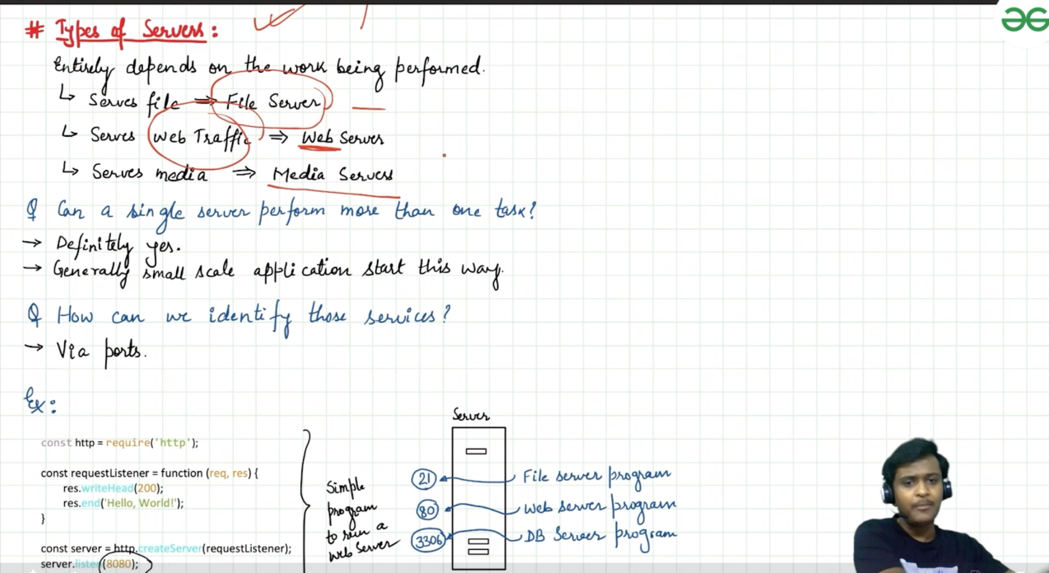 # Types of Servers:
Entirely depends on the work being performed.
↳ Serves file ⇒ File Server
↳ Serves Web Traffic ⇒ Web Server
↳ Serves media ⇒ Media Servers
Q Can a single server perform more than one task?
→ Definitely yes.
→ Generally small scale application start this way.
Q How can we identify those services?
→ Via ports.
Ex:
const http = require('http');
const requestListener = function (req, res) {
res.writeHead(200);
res.end('Hello, World!');
}
const server = http.createServer(requestListener);
server.listen(8080);
Simple
program
to run a
Web Server
Server
21 File server program
80 Web server program
3306 DB Server program